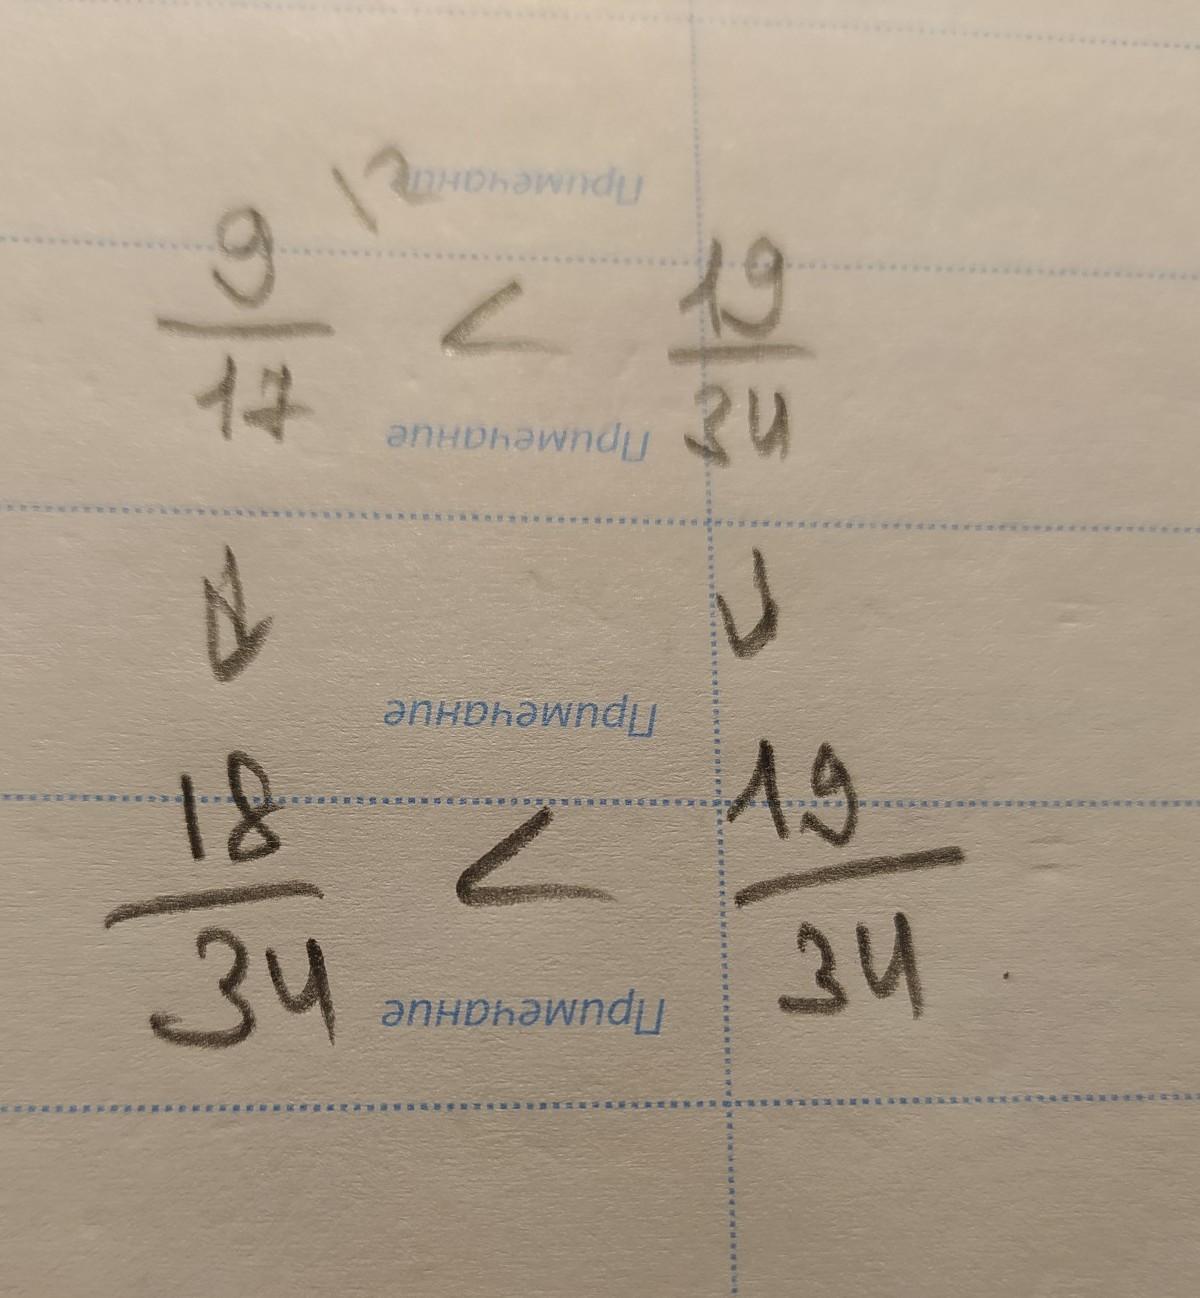 \2 Примечание
9/17 < 19/34
Примечание
Примечание
18/34 < 19/34
Примечание